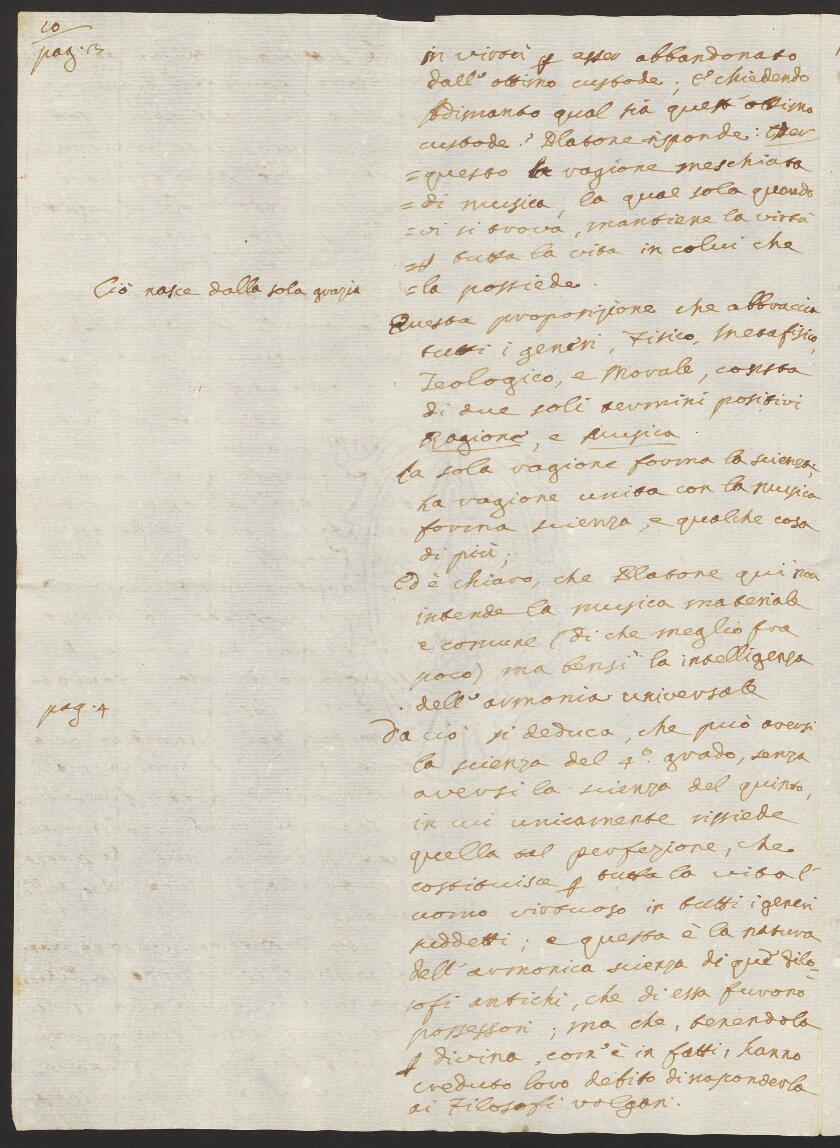 10
pag. 3
in virtù ꝑ esser abbandonato
dall'ottimo custode; E chiedendo
Adimanto qual sia quest'ottimo
custode? Platone risponde: Per
=questo la ragione meschiata
=di musica, la quale sola quando
=vi si trova, mantiene la virtù
=ꝑ tutta la vita in colui che
=la possiede.
Ciò nasce dalla sola grazia
Questa proposizione che abbraccia
tutti i generi, Fisico, Metafisico,
Teologico, e Morale, consta
di due soli termini positivi
Ragione, e Musica.
La sola ragione forma la scienza;
La ragione unita con la musica
forma scienza, e qualche cosa
di più;
Ed è chiaro, che Platone qui non
intende la musica materiale
e comune (di che meglio fra
poco) ma bensì la intelligenza
dell'armonia universale
pag. 4
Da ciò si deduca, che può aversi
la scienza del 4.º grado, senza
aversi la scienza del quinto,
in cui unicamente rissiede
quella tal perfezione, che
costituisce ꝑ tutta la vita l'
uomo virtuoso in tutti i generi
suddetti; e questa è la natura
dell'armonica scienza di què Filo-
sofi antichi, che di essa furono
possessori; ma che, tenendola
ꝑ divina, com'è in fatti, hanno
creduto loro debito di nasconderla
ai Filosofi volgari.